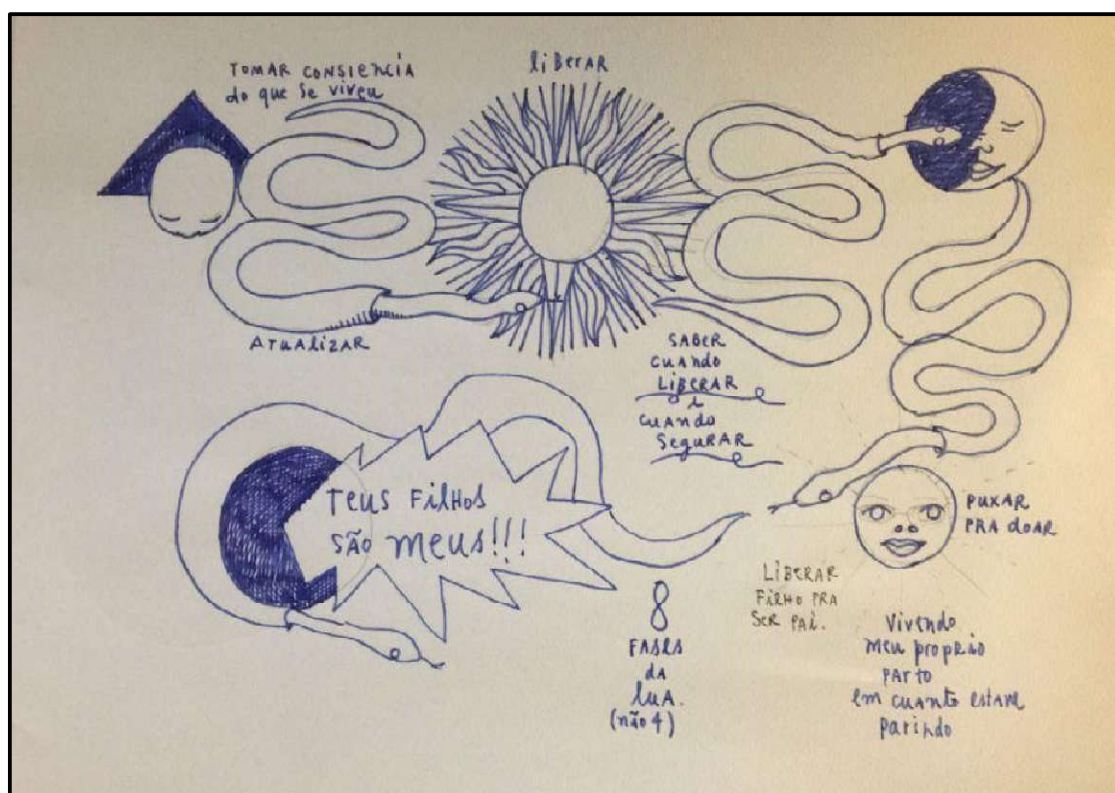 TOMAR CONSIENCIA
do que se viveu
liBERAR
ATUALIZAR
SABER
CUANDO
LIBERAR
E
CUANDO
SEGURAR
TEUS FILHOS
SÃO MEUS!!!
PUXAR
PRA DOAR
LIBERAR
FILHO PRA
SER PAI.
8
FASES
DA
LUA.
(não 4)
Vivendo
meu proprio
parto
em cuanto estave
parindo